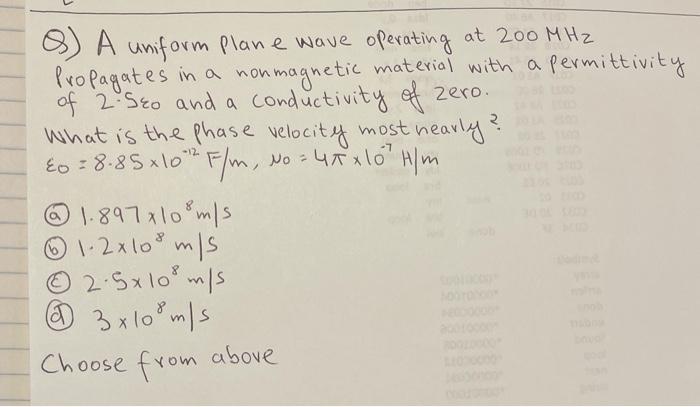 Q) A uniform plane wave operating at 200 MHz
Propagates in a nonmagnetic material with a permittivity
of 2.5ε0 and a conductivity of zero.
What is the phase velocity most nearly?
ε0 = 8.85 x 10^-12 F/m, μ0 = 4π x 10^-7 H/m
(a) 1.897 x 10^8 m/s
(b) 1.2 x 10^8 m/s
(c) 2.5 x 10^8 m/s
(d) 3 x 10^8 m/s
Choose from above